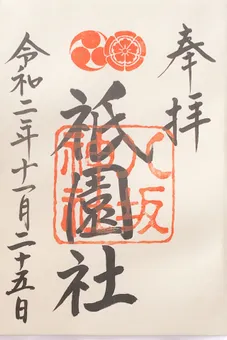 奉拝
祇園社
八坂神社
令和二年十一月二十五日